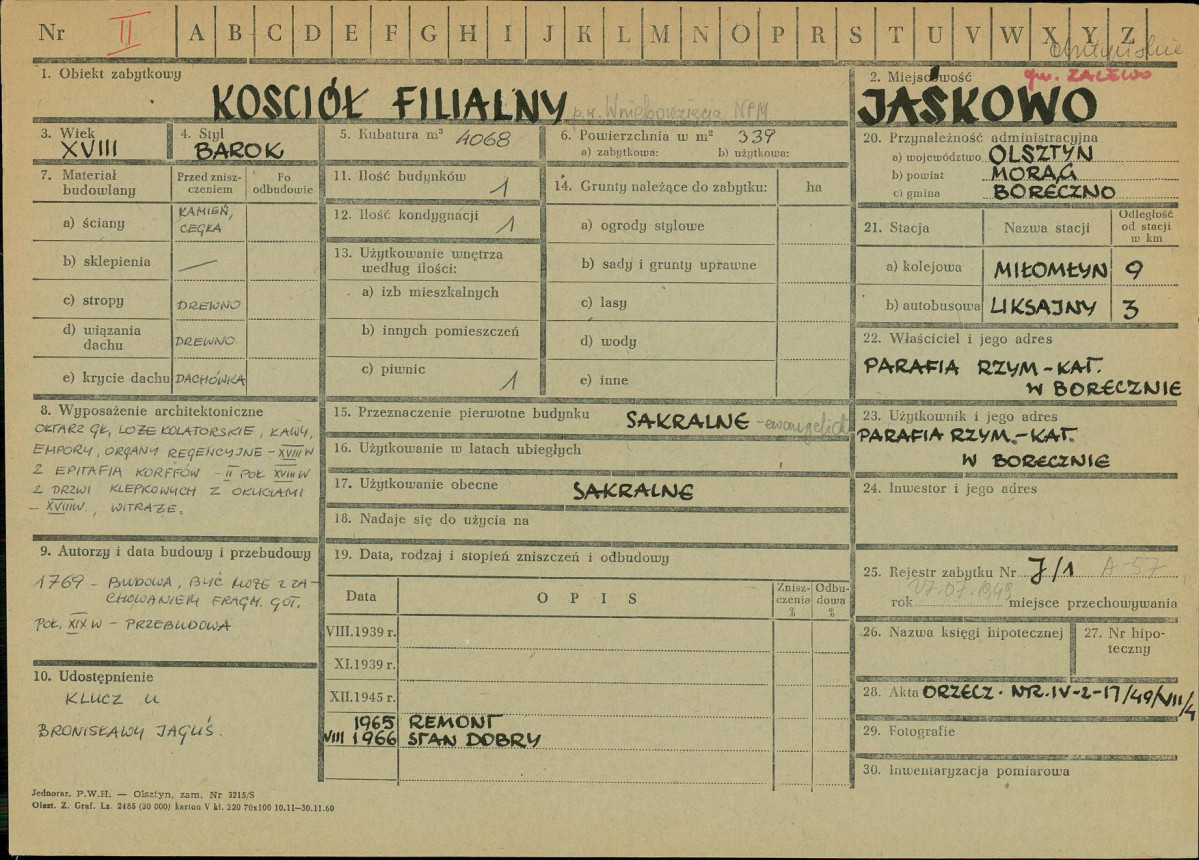 Nr II A B C D E F G H I J K L M N O P R S T U V W X Y Z
gm. ZALEWO
1. Obiekt zabytkowy
KOSCIÓŁ FILIALNY p.w. Wniebowzięcia NPM
2. Miejscowość
JAŚKOWO
3. Wiek
XVIII
4. Styl
BAROK
5. Kubatura m³ 4068
6. Powierzchnia w m² 339
a) zabytkowa: b) użytkowa:
7. Materiał budowlany
Przed znisz-
czeniem
Po
odbudowie
a) ściany KAMIEŃ,
CEGŁA
b) sklepienia —
c) stropy DREWNO
d) wiązania
dachu DREWNO
e) krycie dachu DACHÓWKA
8. Wyposażenie architektoniczne
OŁTARZ GŁ, LOŻE KOLATORSKIE, ŁAWY,
EMPORY, ORGANY REGENCYJNE – XVIII W
2 EPITAFIA KORFFÓW – II POŁ XVIII W
2 DRZWI KLEPKOWYCH Z OKUCIAMI
– XVIII W., WITRAŻE.
9. Autorzy i data budowy i przebudowy
1769 – BUDOWA, BYĆ MOŻE Z ZA-
CHOWANIEM FRAGM. GOT.
POŁ. XIX W – PRZEBUDOWA
10. Udostępnienie
KLUCZ U
BRONISŁAWY JAGUŚ.
11. Ilość budynków 1
12. Ilość kondygnacji 1
13. Użytkowanie wnętrza
według ilości:
a) izb mieszkalnych
b) innych pomieszczeń
c) piwnic 1
14. Grunty należące do zabytku: ha
a) ogrody stylowe
b) sady i grunty uprawne
c) lasy
d) wody
e) inne
15. Przeznaczenie pierwotne budynku SAKRALNE
16. Użytkowanie w latach ubiegłych
17. Użytkowanie obecne SAKRALNE
18. Nadaje się do użycia na
19. Data, rodzaj i stopień zniszczeń i odbudowy
Data OPIS Znisz-
czenia
%
Odbu-
dowa
%
VIII.1939 r.
XI.1939 r.
XII.1945 r.
1965 REMONT
VIII 1966 STAN DOBRY
20. Przynależność administracyjna
a) województwo OLSZTYN
b) powiat MORĄG
c) gmina BORECZNO
21. Stacja Nazwa stacji Odległość
od stacji
w km
a) kolejowa MIŁOMŁYN 9
b) autobusowa LIKSAJNY 3
22. Właściciel i jego adres
PARAFIA RZYM-KAT.
W BORECZNIE
23. Użytkownik i jego adres
PARAFIA RZYM.-KAT.
W BORECZNIE
24. Inwestor i jego adres
25. Rejestr zabytku Nr J/1 A-57
rok 17.07.1949 miejsce przechowywania
26. Nazwa księgi hipotecznej
27. Nr hipo-
teczny
28. Akta ORZECZ. NR. IV-2-17/49/VII/4
29. Fotografie
30. Inwentaryzacja pomiarowa
Jednoraz. P.W.H. — Olsztyn, zam. Nr 3215/S
Olszt. Z. Graf. Lz. 2485 (30 000) karton V kl. 220 70x100 10.11—30.11.60